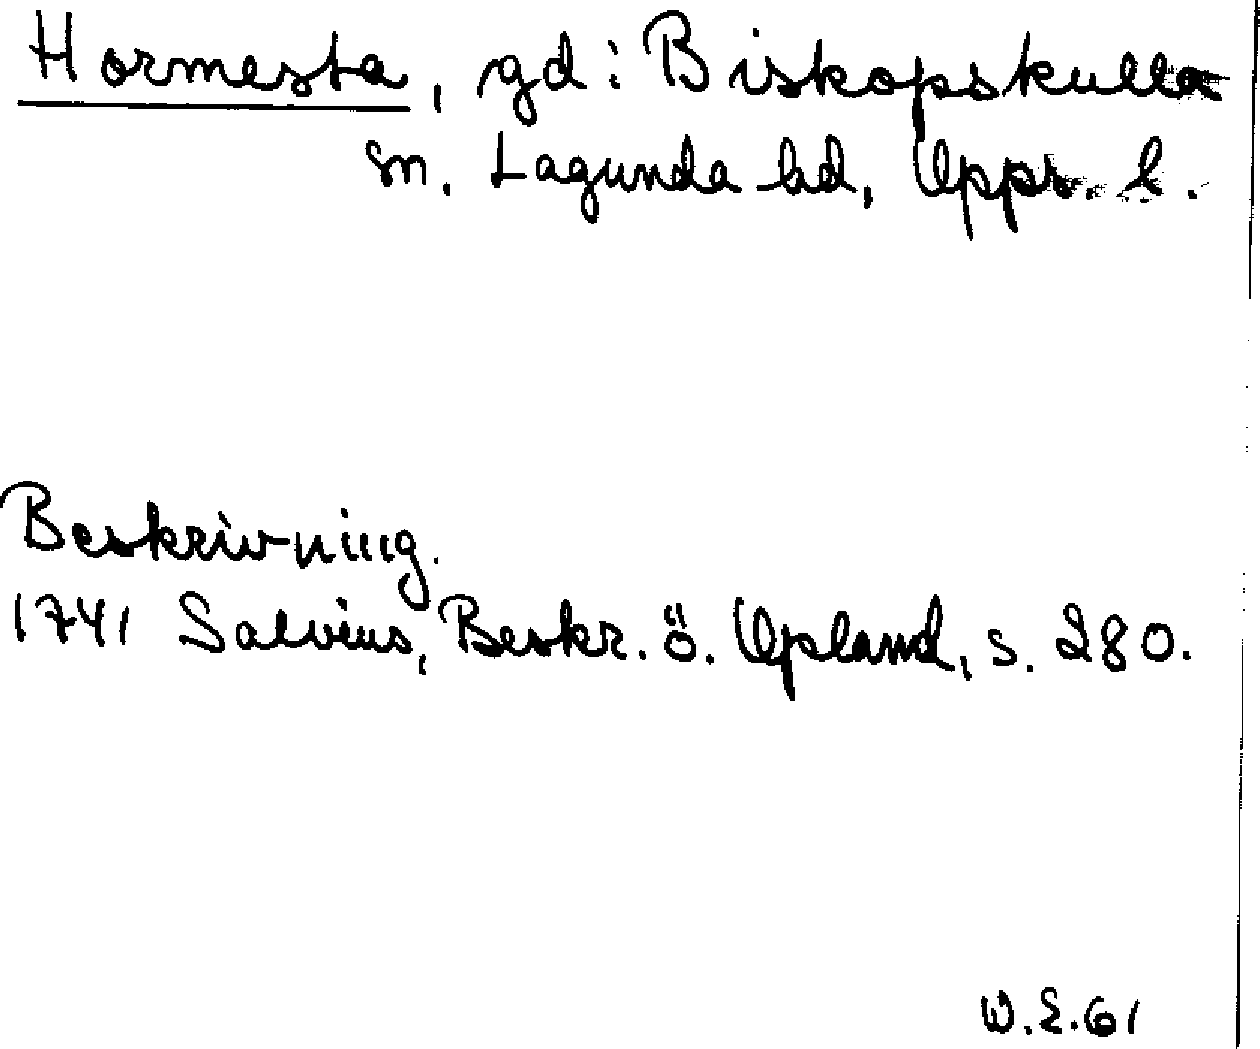 Hormesta, gd i Biskopskulla
sn. Lagunda hd, Upps. l.
Beskrivning.
1741 Salvius, Beskr. ö. Upland, s. 280.
W.E.61